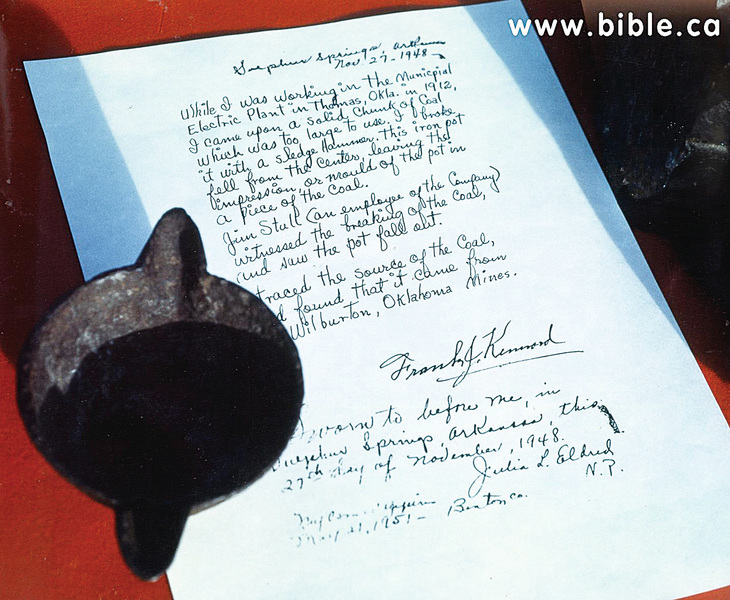 www.bible.ca
Sulphur Springs, Arkansas
Nov 27-1948-
While I was working in the Municpial
Electric Plant in Thomas, Okla. in 1912,
I came upon a solid chunk of Coal
which was too large to use. I broke
it with a sledge Hammer, this iron pot
fell from the center, leaving the
impression, or mould of the pot in
a piece of the coal.
Jim Stull (an employee of the Company)
witnessed the breaking of the coal,
and saw the pot fall out.
traced the source of the Coal,
found that it came from
Wilburton, Oklahoma Mines.
Frank J. Kennard
Sworn to before me, in
Sulphur Springs, Arkansas, this
27th day of November, 1948.
Julia L. Eldred
N.P.
My Com. Expires
May 21, 1951- Benton co.